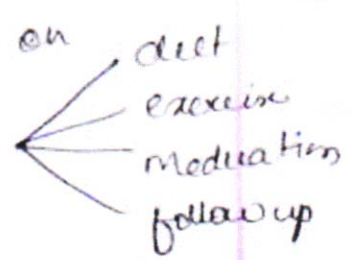 on
diet
exercise
medication
follow up